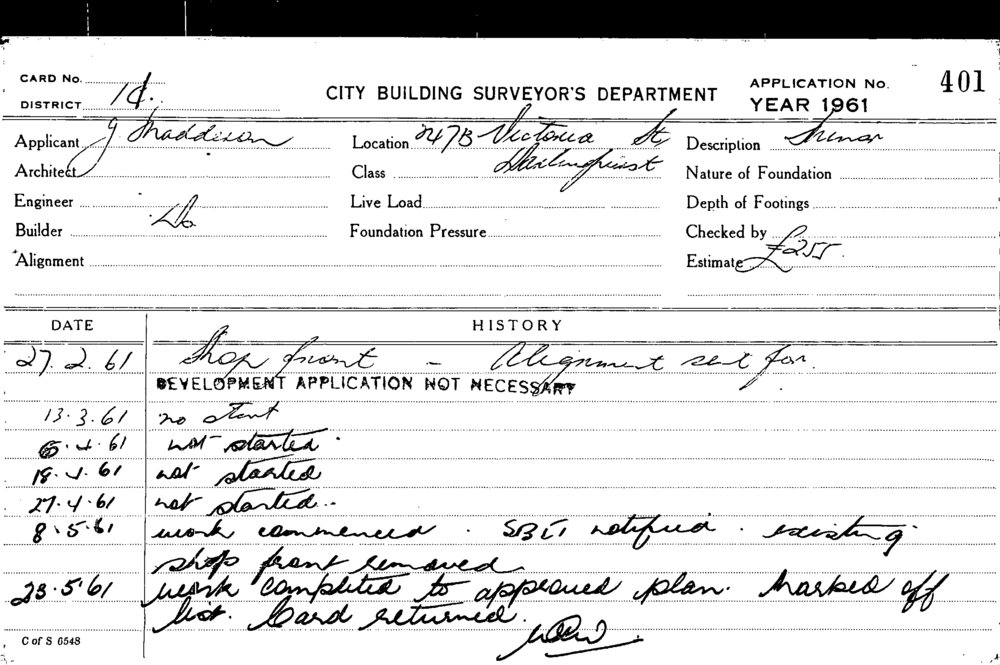 CARD No.
DISTRICT
CITY BUILDING SURVEYOR'S DEPARTMENT
APPLICATION No. 401
YEAR 1961
Applicant J. Maddison
Location 247B Victoria St,
Darlinghurst
Description Minor
Architect
Class
Nature of Foundation
Engineer
Live Load
Depth of Footings
Builder Do
Foundation Pressure
Checked by
Alignment
Estimate £255.
DATE HISTORY
27.2.61 Shop front - Alignment sent for.
DEVELOPMENT APPLICATION NOT NECESSARY
13.3.61 no start
6.4.61 not started.
18.4.61 not started
27.4.61 not started..
8.5.61 work commenced. notified. existing
shop front removed
23.5.61 work completed to approved plan. Marked off
list. Card returned.
C of S 6548